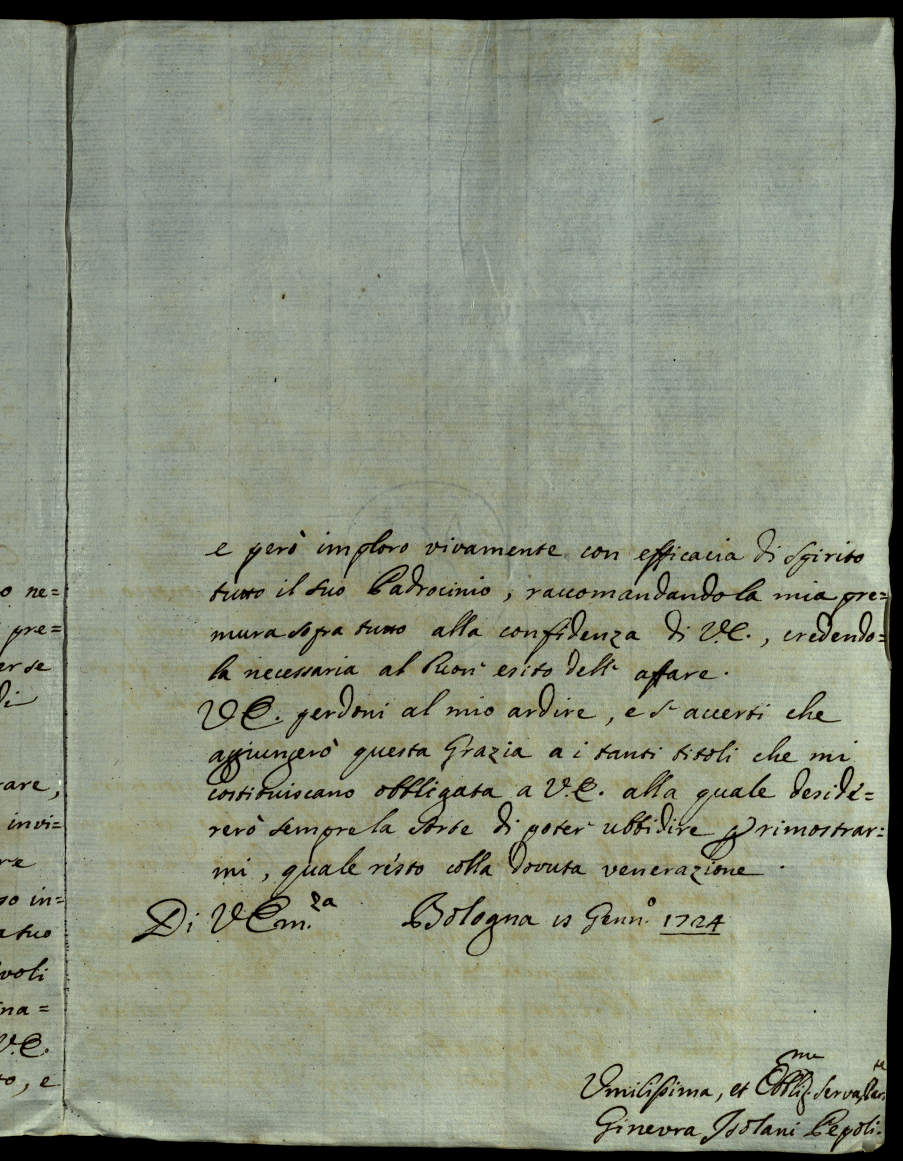 o ne=
pre=
er se
di
rare,
invi=
re
so in=
a suo
voli
na=
V.E.
to, e
e però imploro vivamente con efficacia di spirito
tutto il suo Padrocinio, raccomandandola mia pre=
mura sopra tutto alla confidenza di V.E., credendo=
la necessaria al buon esito dell' affare.
V.E. perdoni al mio ardire, e s' accerti che
aggiungerò questa Grazia a i tanti titoli che mi
costituiscano obbligata a V.E. alla quale deside=
rerò sempre la sorte di poter ubbidire p rimostrar=
mi, quale resto colla dovuta venerazione
Di V Em.za Bologna is Genn.o 1724
Umilissima, et Obblig.ma Serva
Ginevra Isolani Pepoli.